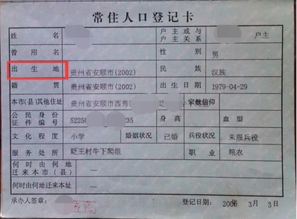 常住人口登记卡
姓名 户主或与户主关系
曾用名 性别 男
出生地 贵州省安顺市(2002) 民族 汉族
籍贯 贵州省安顺市(2002) 出生日期 1979-04-29
本市(县)其他住址 贵州省安顺市西秀 宗教信仰
公民身份证件编号 5225
文化程度 小学 婚姻状况 已婚 兵役状况 未服兵役
服务处所 村牛下爬组 职业
何时由何地迁来本市(县)
何时由何地迁来本址
承办人签章 登记日期: 3月3日